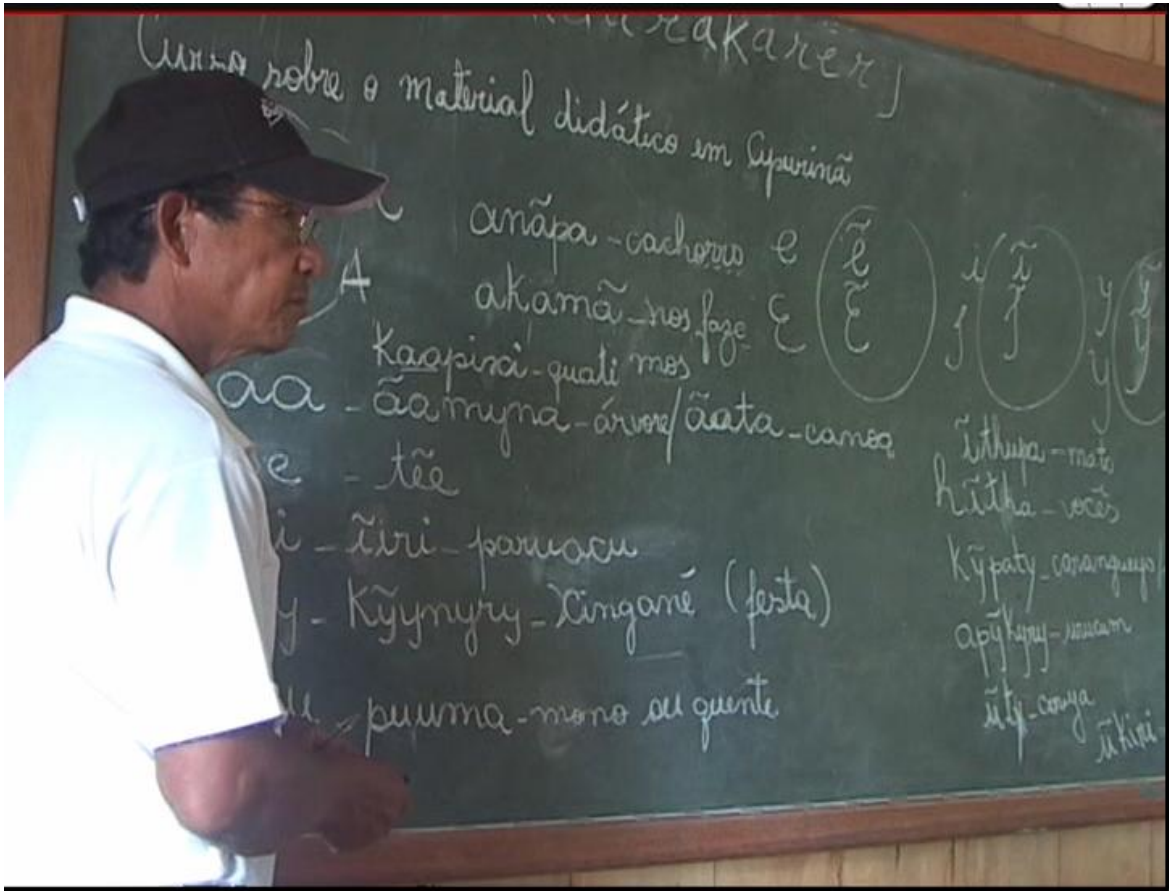 Curso sobre o material didático em Apurinã
anãpa - cachorro e ẽ i ĩ y ỹ
A akamã - nos faze E Ẽ
mos
Kaapixi - quati
aa - ãamyna - árvore/ãata - canoa
e - tẽe
i - ĩiri - paruacu
y - Kỹynyry - Xingané (festa)
uu - puuma - mono ou quente
ĩthupa - mato
hĩtha - vocês
Kỹpaty - carangueyo
apỹkyry - urucum
ũty - couya
ũkixi